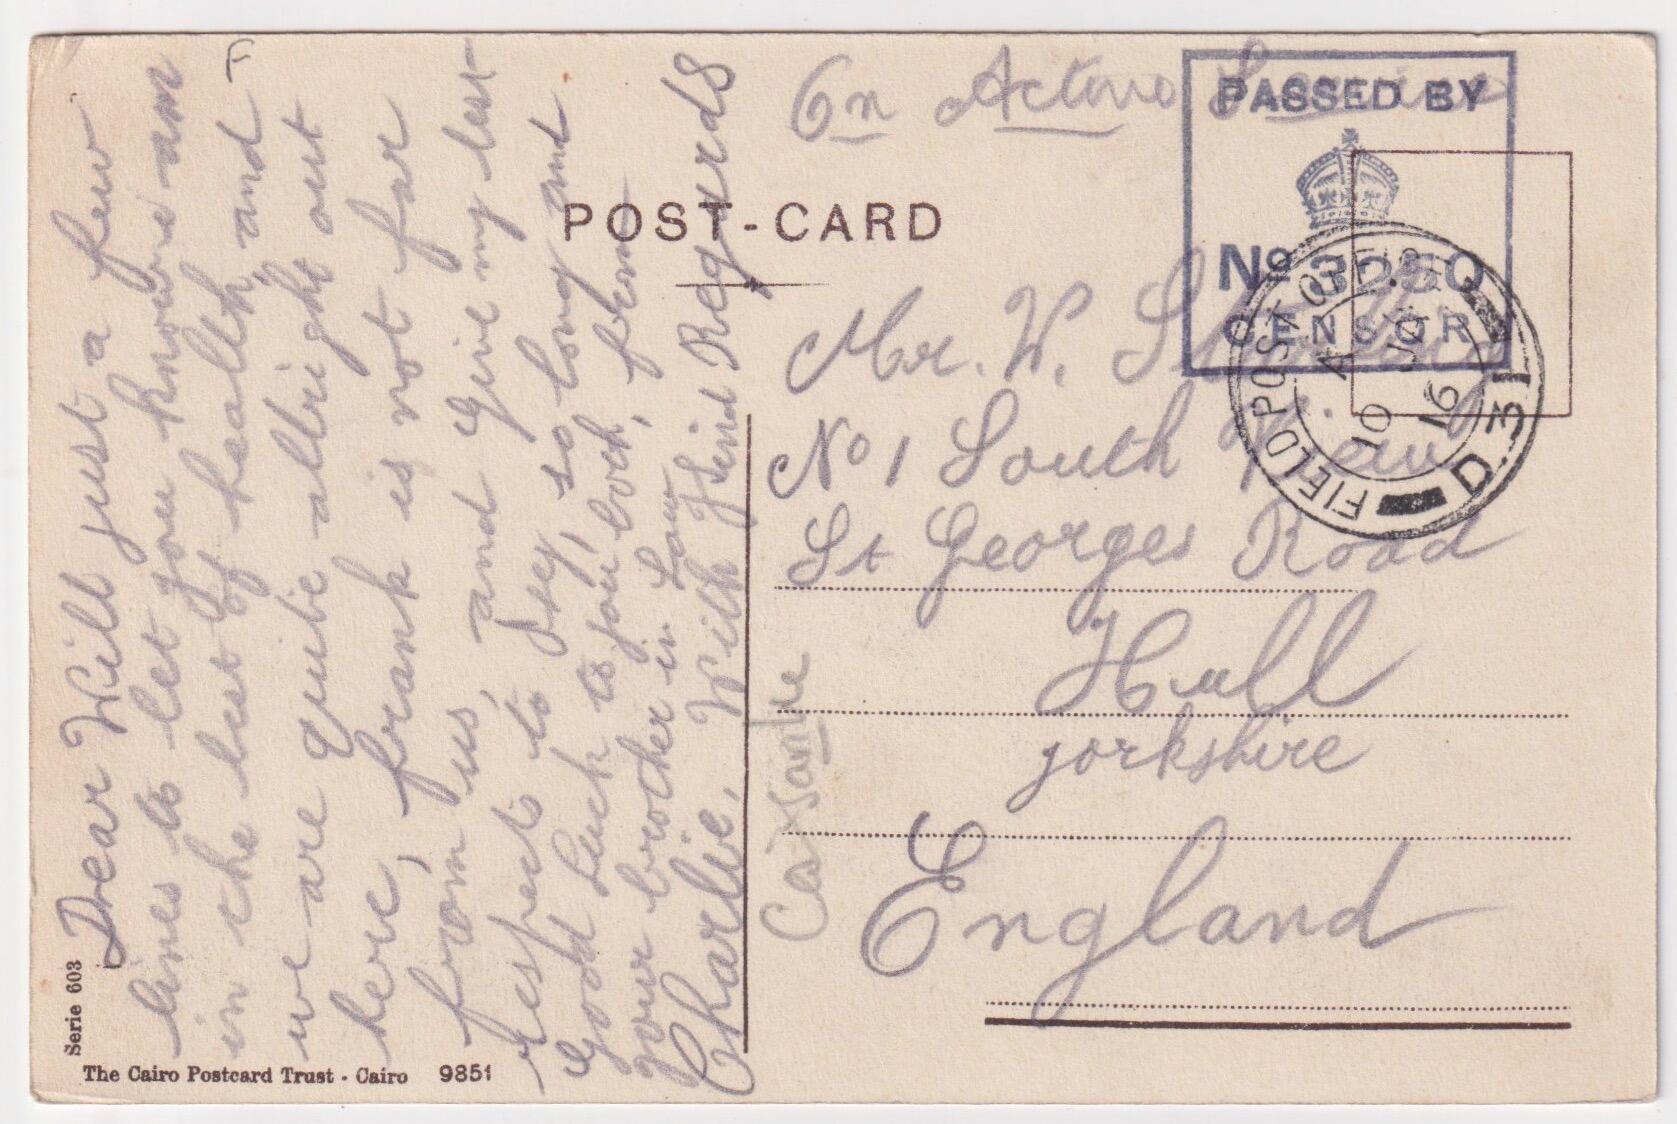 On Active Service
PASSED BY
No 3250
CENSOR
FIELD POST OFFICE
D 31
A
10 JA
16
POST-CARD
Mr. W.
No 1 South View
St Georges Road
Hull
yorkshire
England
Dear Will just a few
lines to let you know i am
in the best of health, and
we are quite allright out
here, frank is not far
from us, and Give my best
respects to
so long and
Good Luck to you both, from
your brother in Law
Charlie, With Kind Regards
Serie 603
The Cairo Postcard Trust - Cairo 9851